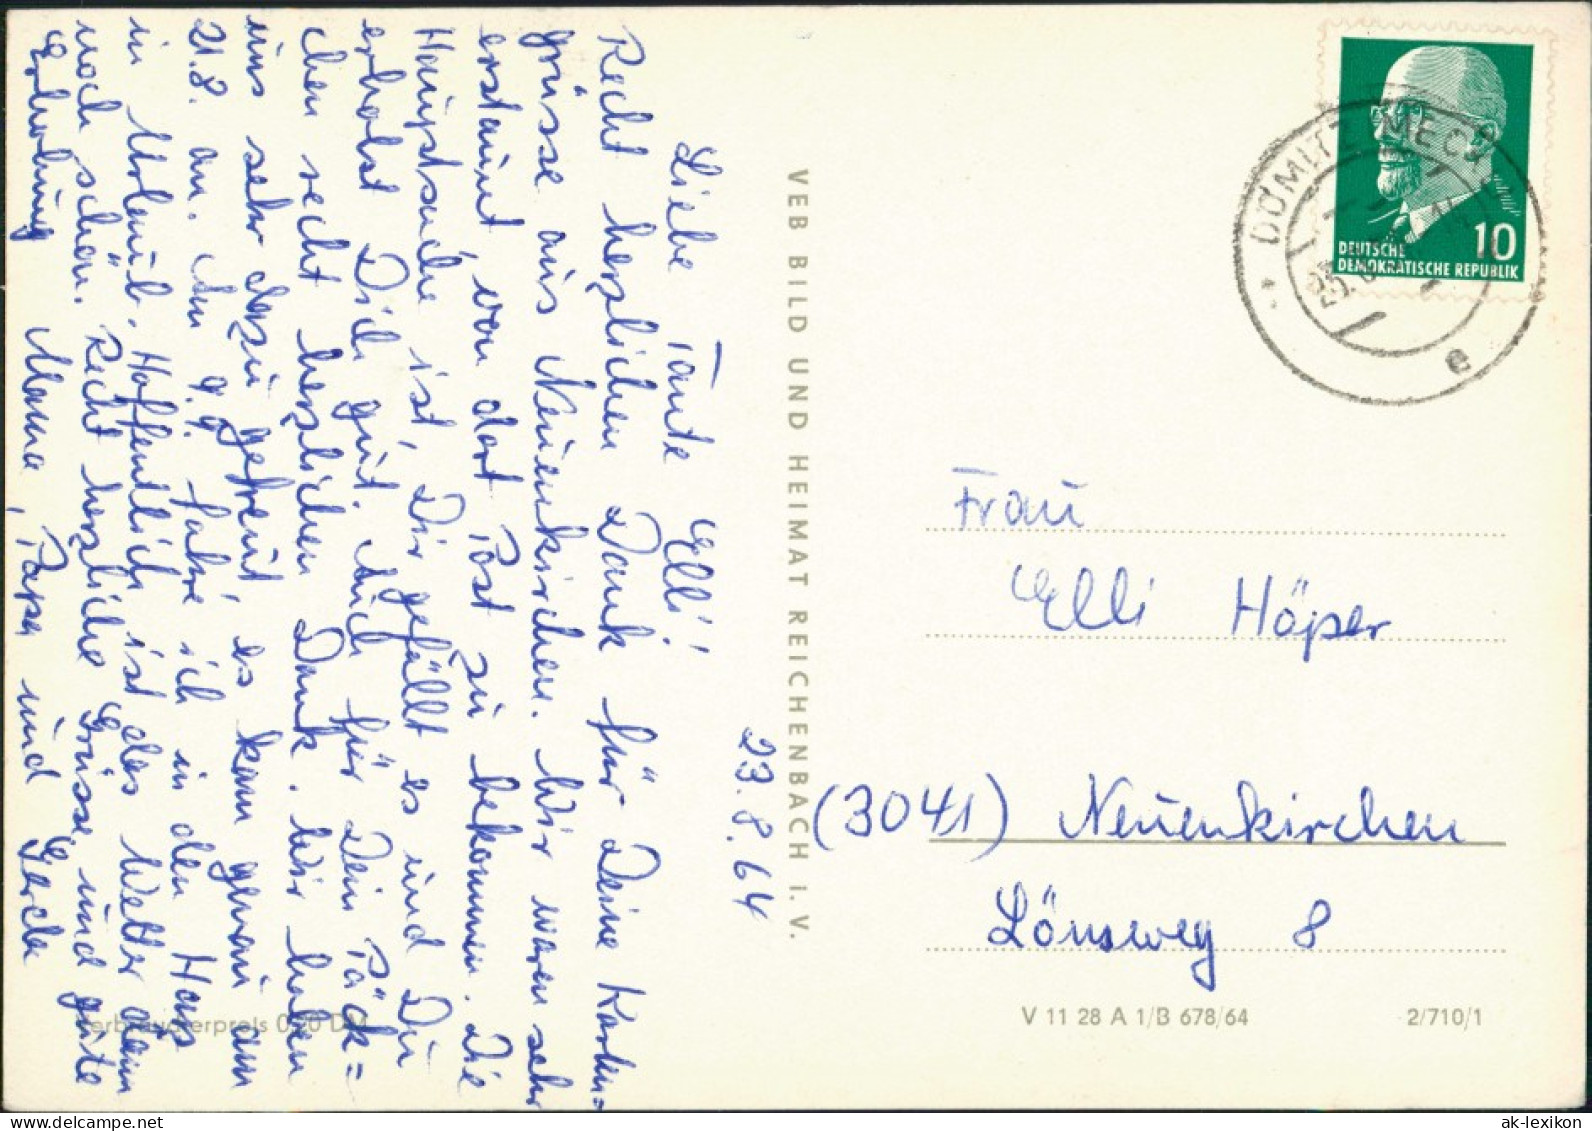 23.8.64
Liebe Tante Elli!
Recht herzlichen Dank für Deine Karten=
grüsse aus Neuenkirchen. Wir waren sehr
erstaunt, von dort Post zu bekommen. Die
Hauptsache ist, Dir gefällt es und Du
erholst Dich gut. Auch für Dein Päck=
chen recht herzlichen Dank. Wir haben
uns sehr dazu gefreut, es kam genau am
21.8. an. Am 9.9. fahre ich in den Harz
in Urlaub. Hoffentlich ist das Wetter dann
noch schön. Recht herzliche Grüsse und gute
Erholung Mama, Papa und Gerda
VEB BILD UND HEIMAT REICHENBACH I. V.
DEUTSCHE
DEMOKRATISCHE REPUBLIK
10
DÖMITZ (MECKL)
e
Frau
Elli Höper
(3041) Neuenkirchen
Lönsweg 8
V 11 28 A 1/B 678/64
2/710/1
ak-lexikon